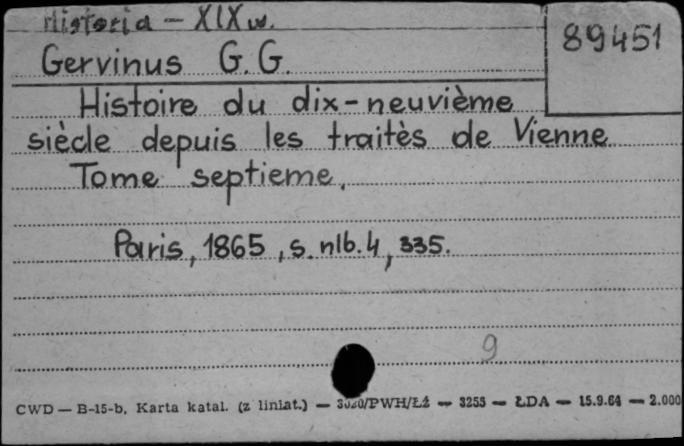 Historia - XIX w.
89451
Gervinus G. G.
Histoire du dix-neuvième
siècle depuis les traitès de Vienne
Tome septieme.
Paris, 1865, s. nlb. 4, 335.
9
CWD — B-15-b, Karta katal. (z liniat.) — 3020/PWH/ŁŻ — 3253 — ŁDA — 15.9.64 — 2.000